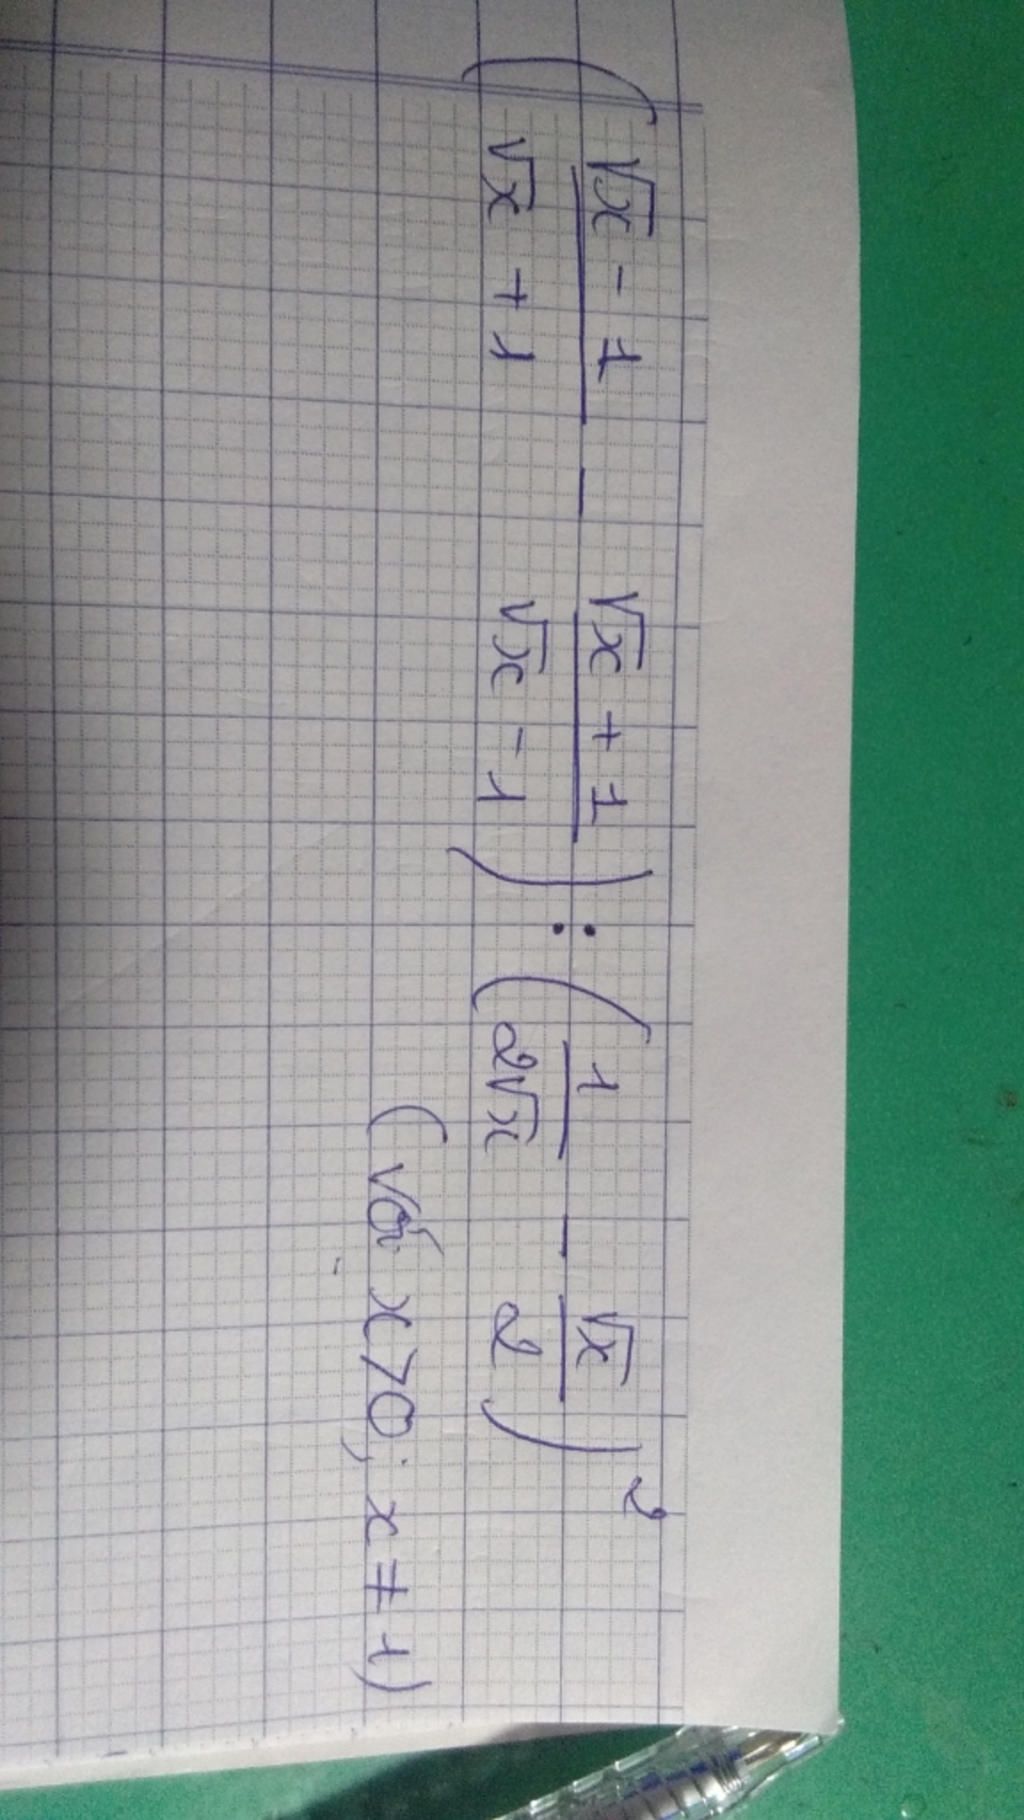 (√x - 1 / √x + 1 - √x + 1 / √x - 1) : (1 / 2√x - √x / 2)²
(với x > 0; x ≠ 1)